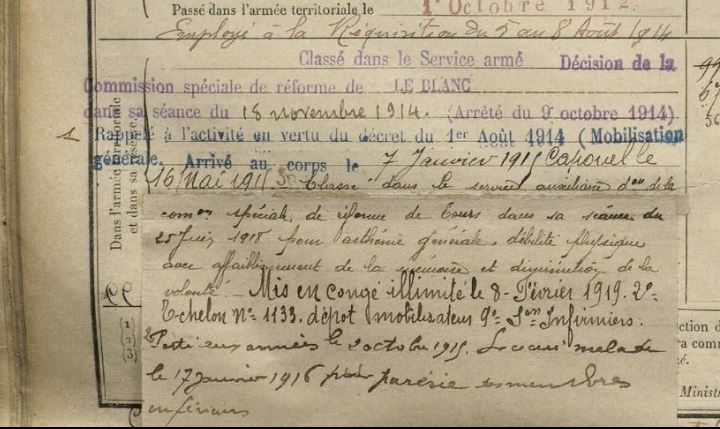 Passé dans l'armée territoriale le 1er Octobre 1912.
Employé à la Réquisition du 5 au 8 Août 1914
Classé dans le Service armé Décision de la
Commission spéciale de réforme de LE BLANC
dans sa séance du 18 novembre 1914. (Arrêté du 9 octobre 1914)
1 Rappelé à l'activité en vertu du décret du 1er Août 1914 (Mobilisation
générale. Arrivé au corps le 7 Janvier 1915
16 Mai 1915 Classé dans le service auxiliaire don de la
comon spéciale de réforme de Tours dans sa séance du
25 1918 pour asthénie générale, débilité physique
avec affaiblissement de la mémoire et diminution de la
volonté. Mis en congé illimité le 8 Février 1919. 2e
Echelon No 1133. dépôt mobilisateur 9e Son Infirmiers.
2 Parti aux armées le 2 octobre 1915. Evacué malade
le 17 janvier 1916 pour parésie des membres
inférieurs
Dans l'armée territoriale
et dans sa réserve.
ction d
ra comm
é.
Minist